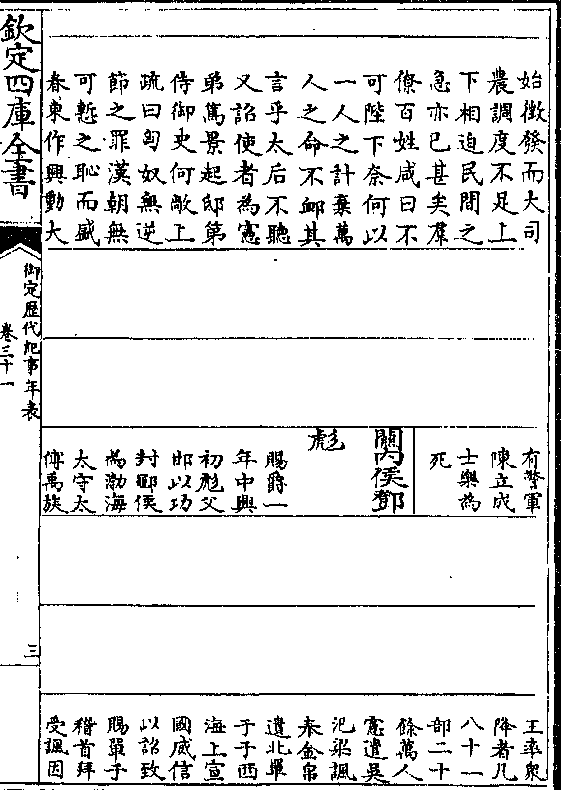 始徵發而大司
農調度不足上
下相迫民間之
急亦已甚矣羣
僚百姓咸曰不
可陛下奈何以
一人之計棄萬
人之命不䘏其
言乎太后不聽
又詔使者為憲
弟篤景起邸第
侍御史何敞上
疏曰匈奴無逆
節之罪漢朝無
可慙之恥而盛
春東作興動大
有警軍
陳立成
士樂為
死
關內侯鄧
彪
賜爵一
年中興
初彪父
邯以功
封鄳侯
為渤海
太守太
傅萬族
王率衆
降者凡
八十一
部二十
餘萬人
憲遣吳
汜梁諷
奉金帛
遺北單
于于西
海上宣
國威信
以詔致
賜單于
稽首拜
受諷因
欽定四庫全書
御定歷代紀事年表
卷三十一
三